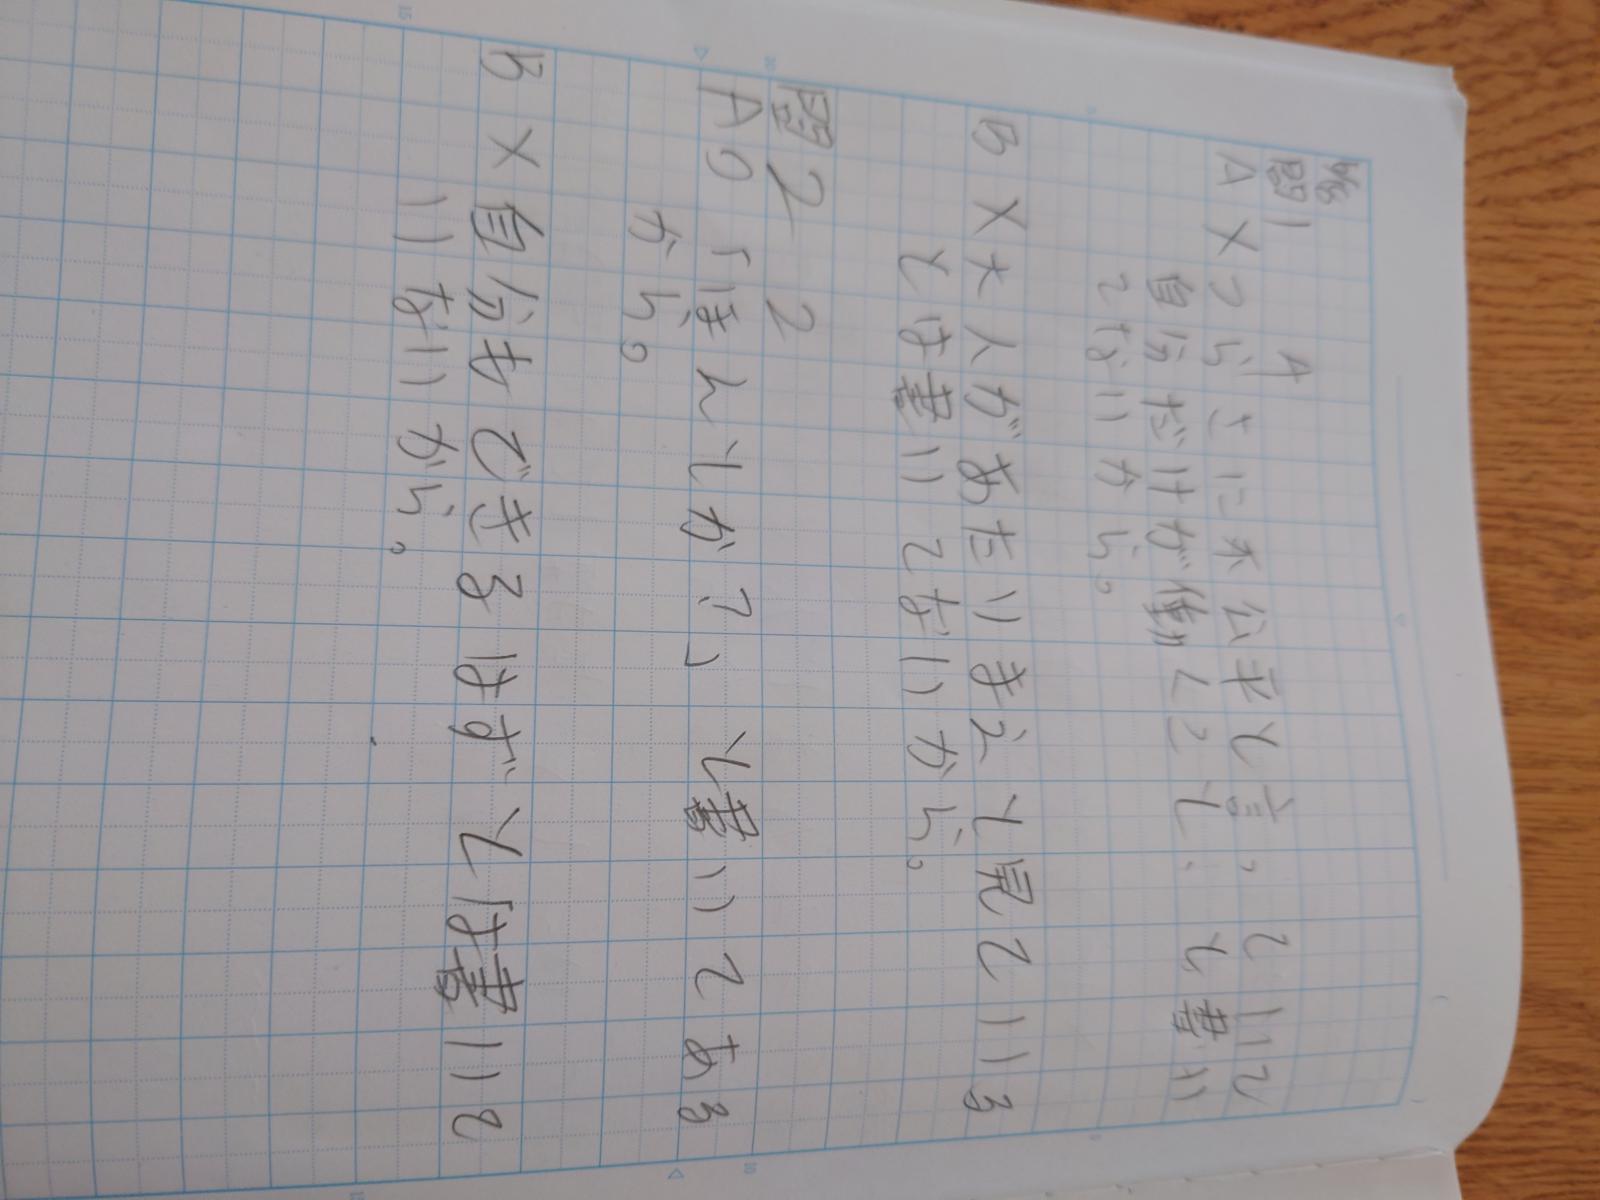 問1 A
A ×つらさに不公平と言っていて
自分だけが働くこと、と書い
てないから。
B ×大人があたりまえと見ている
とは書いてないから。
問2 2
A○「ほんとか?」と書いてある
から。
B ×自分もできるはずとは書いて
いないから。